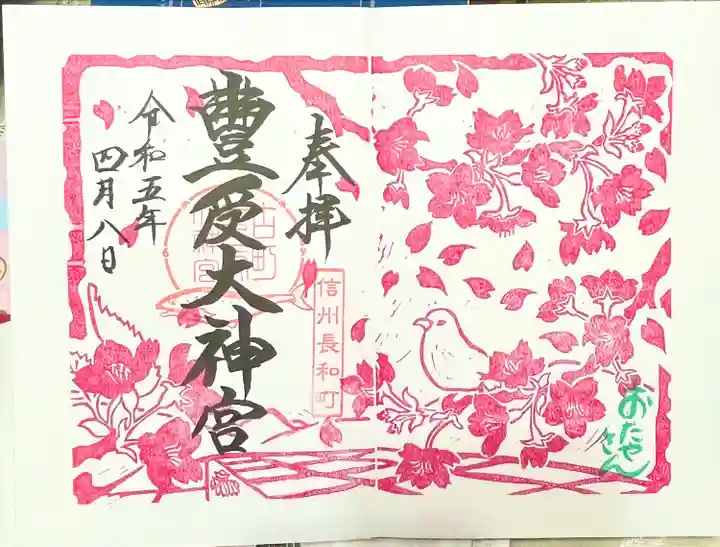 奉拝
豊受大神宮
信州長和町
令和五年
四月八日
おたや
さん